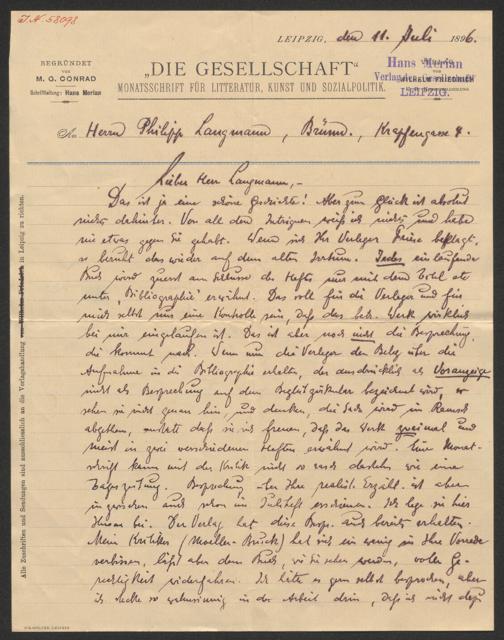 I.N. 58098
LEIPZIG, den 11. Juli 1896.
BEGRÜNDET
VON
M. G. CONRAD
Schriftleitung: Hans Merian
„DIE GESELLSCHAFT“
MONATSSCHRIFT FÜR LITTERATUR, KUNST UND SOZIALPOLITIK.
Hans Merian
Verlag
WILHELM FRIEDRICH
LEIPZIG.
An Herrn Philipp Langmann, Brünn, Krapfengasse 4.
Lieber Herr Langmann,-
Das ist ja eine schöne Geschichte! Aber zum Glück ist absolut
nichts dahinter. Von all den Intriguen weiß ich nichts und habe
nie etwas gegen Sie gehabt. Wenn sich Ihr Verleger Friese beklagt,
so beruht das wieder auf dem alten Irrtum. Jedes einlaufende
Buch wird zuerst am Schlusse des Hefts nur mit dem Titel etc
unter „Bibliographie“ erwähnt. Das soll für die Verleger und für
mich selbst nur eine Kontrolle sein, daß das betr. Werk wirklich
bei mir eingelaufen ist. Das ist aber noch nicht die Besprechung,
die kommt nach. Wenn nun die Verleger den Beleg über die
Aufnahme in die Bibliographie erhalten, der ausdrücklich als Voranzeige
nicht als Besprechung auf dem Begleitzirkular bezeichnet wird, so
sehen sie nicht genau hin, und denken, die Sache wird in Ramsch
abgethan, anstatt daß sie sich freuen, daß das Werk zweimal und
meist in zwei verschiedenen Heften erwähnt wird. Eine Monat-
schrift kann mit der Kritik nicht so rasch dasein wie eine
Tageszeitung. Besprechung Ihre realist. Erzähl. ist aber
inzwischen auch schon im Juliheft erschienen. Ich lege sie hier
bei. Der Verlag hat diese Besp. auch bereits erhalten.
Mein Kritiker (Moeller-Bruck) hat sich ein wenig in Ihre Vorrede
verbissen, läßt aber dem Buch, wie Sie sehen werden, voller Ge-
rechtigkeit widerfahren. Ich hätte es gern selbst besprochen, aber
ich stecke so in der Arbeit drin, daß ich nicht dazu
Alle Zuschriften und Sendungen sind ausschliesslich an die Verlagshandlung von Wilhelm Friedrich in Leipzig zu richten.